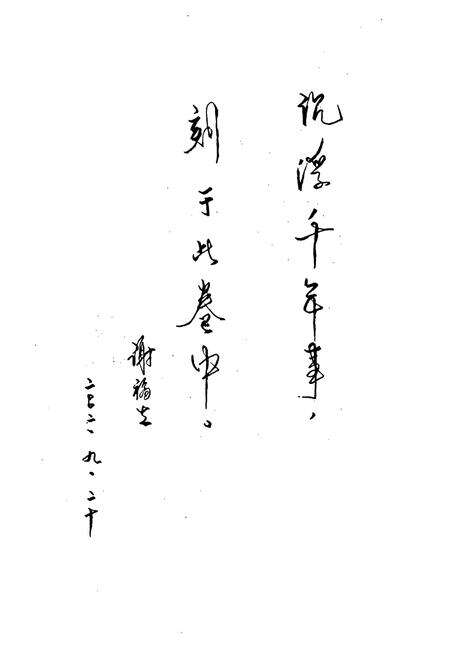 沉浮千年事，
刻于此卷中。
谢福生
二〇〇六.九.二十